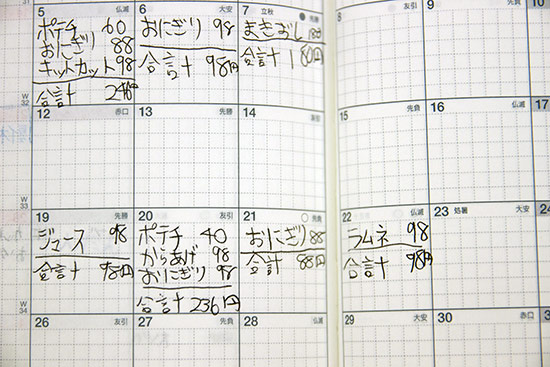 5 仏滅
ポテチ 60
おにぎり 88
キットカット 98
合計 246円
6 大安
おにぎり 98
合計 98円
7 立秋 先勝
まきずし 180
合計 180円
8 友引
9 先負
W
32
12 赤口
13 先勝
14 友引
15 先負
16 仏滅
W
33
19 先勝
ジュース 98
合計 98円
20 友引
ポテチ 40
からあげ 98
おにぎり 98
合計 236円
21 先負
おにぎり 88
合計 88円
22 仏滅
ラムネ 98
合計 98円
23 処暑 大安
24
W
34
26 友引
27 先負
28 仏滅
29 大安
30 赤口